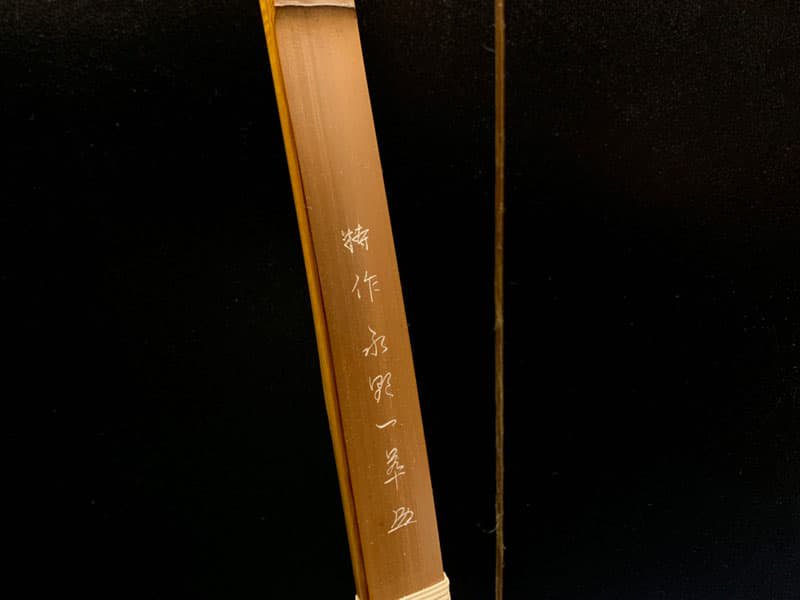 特作永野一萃